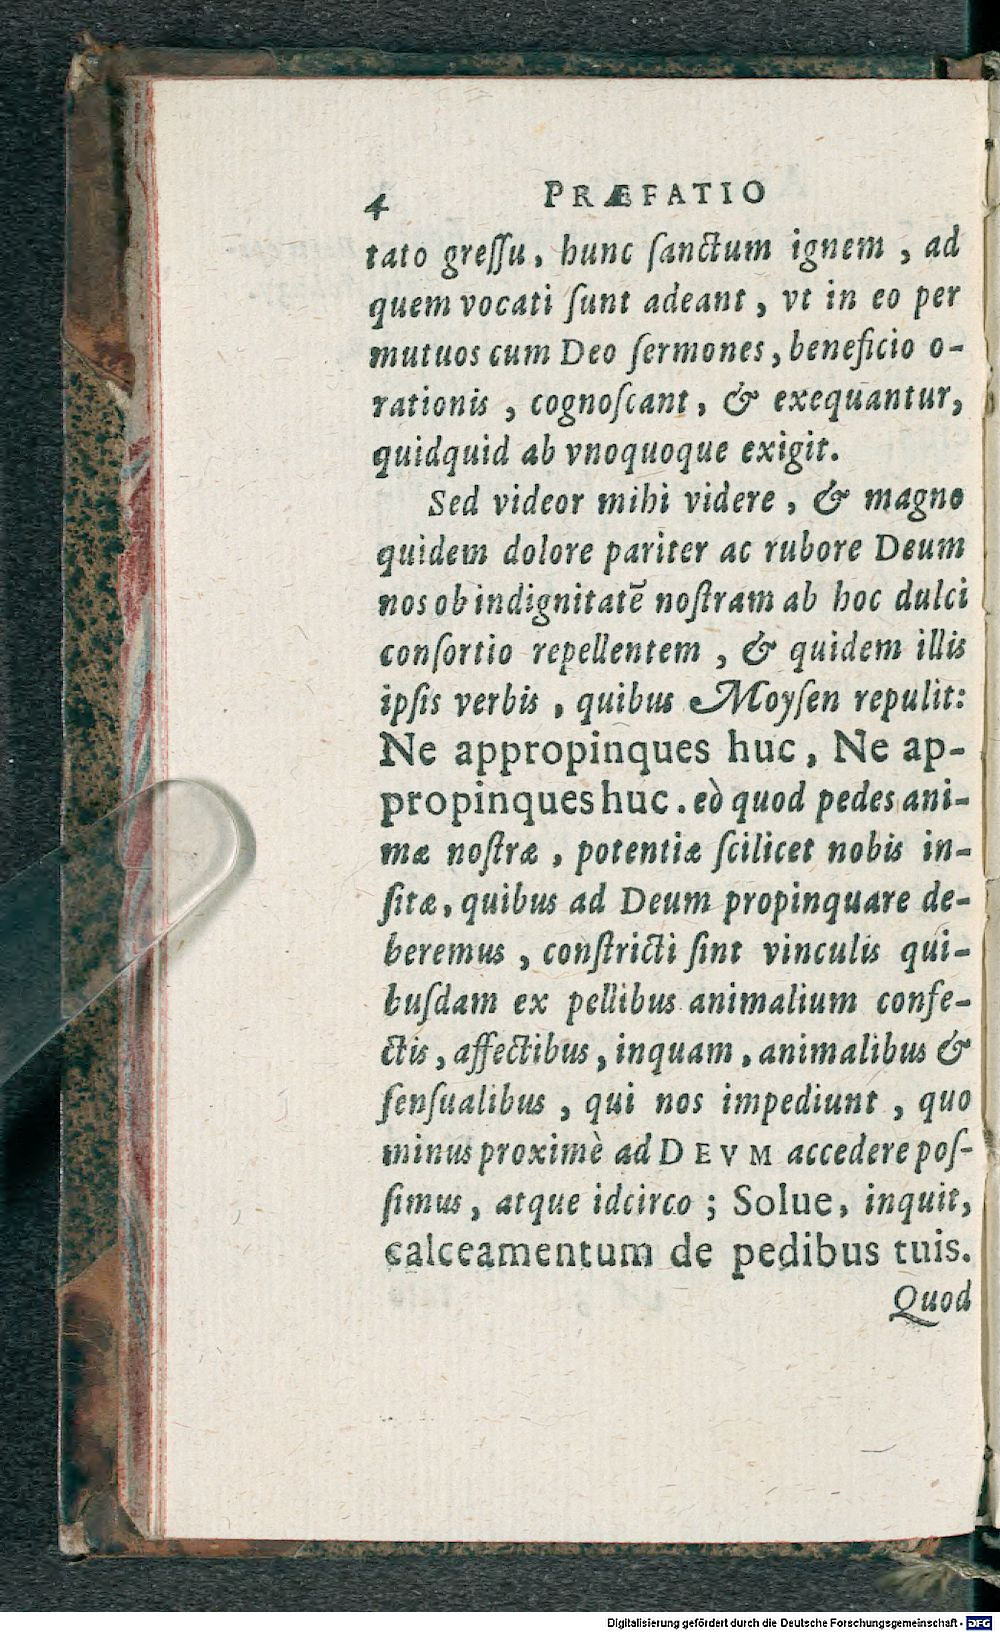 4 PRÆFATIO
tato greſſu, hunc ſanctum ignem, ad
quem vocati ſunt adeant, vt in eo per
mutuos cum Deo ſermones, beneficio o-
rationis, cognoſcant, & exequantur,
quidquid ab vnoquoque exigit.
Sed videor mihi videre, & magno
quidem dolore pariter ac rubore Deum
nos ob indignitatē noſtram ab hoc dulci
conſortio repellentem, & quidem illis
ipſis verbis, quibus Moyſen repulit:
Ne appropinques huc, Ne ap-
propinques huc. eò quod pedes ani-
mæ noſtræ, potentiæ ſcilicet nobis in-
ſitæ, quibus ad Deum propinquare de-
beremus, conſtricti ſint vinculis qui-
buſdam ex pellibus animalium confe-
ctis, affectibus, inquam, animalibus &
ſenſualibus, qui nos impediunt, quo
minus proximè ad DEVM accedere poſ-
ſimus, atque idcirco; Solue, inquit,
calceamentum de pedibus tuis.
Quod
Digitalisierung gefördert durch die Deutsche Forschungsgemeinschaft - DFG